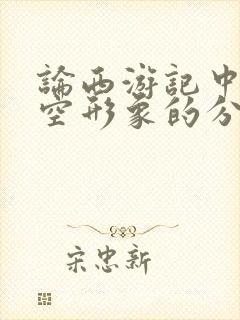 論西游記中
空形象的分
宋忠新